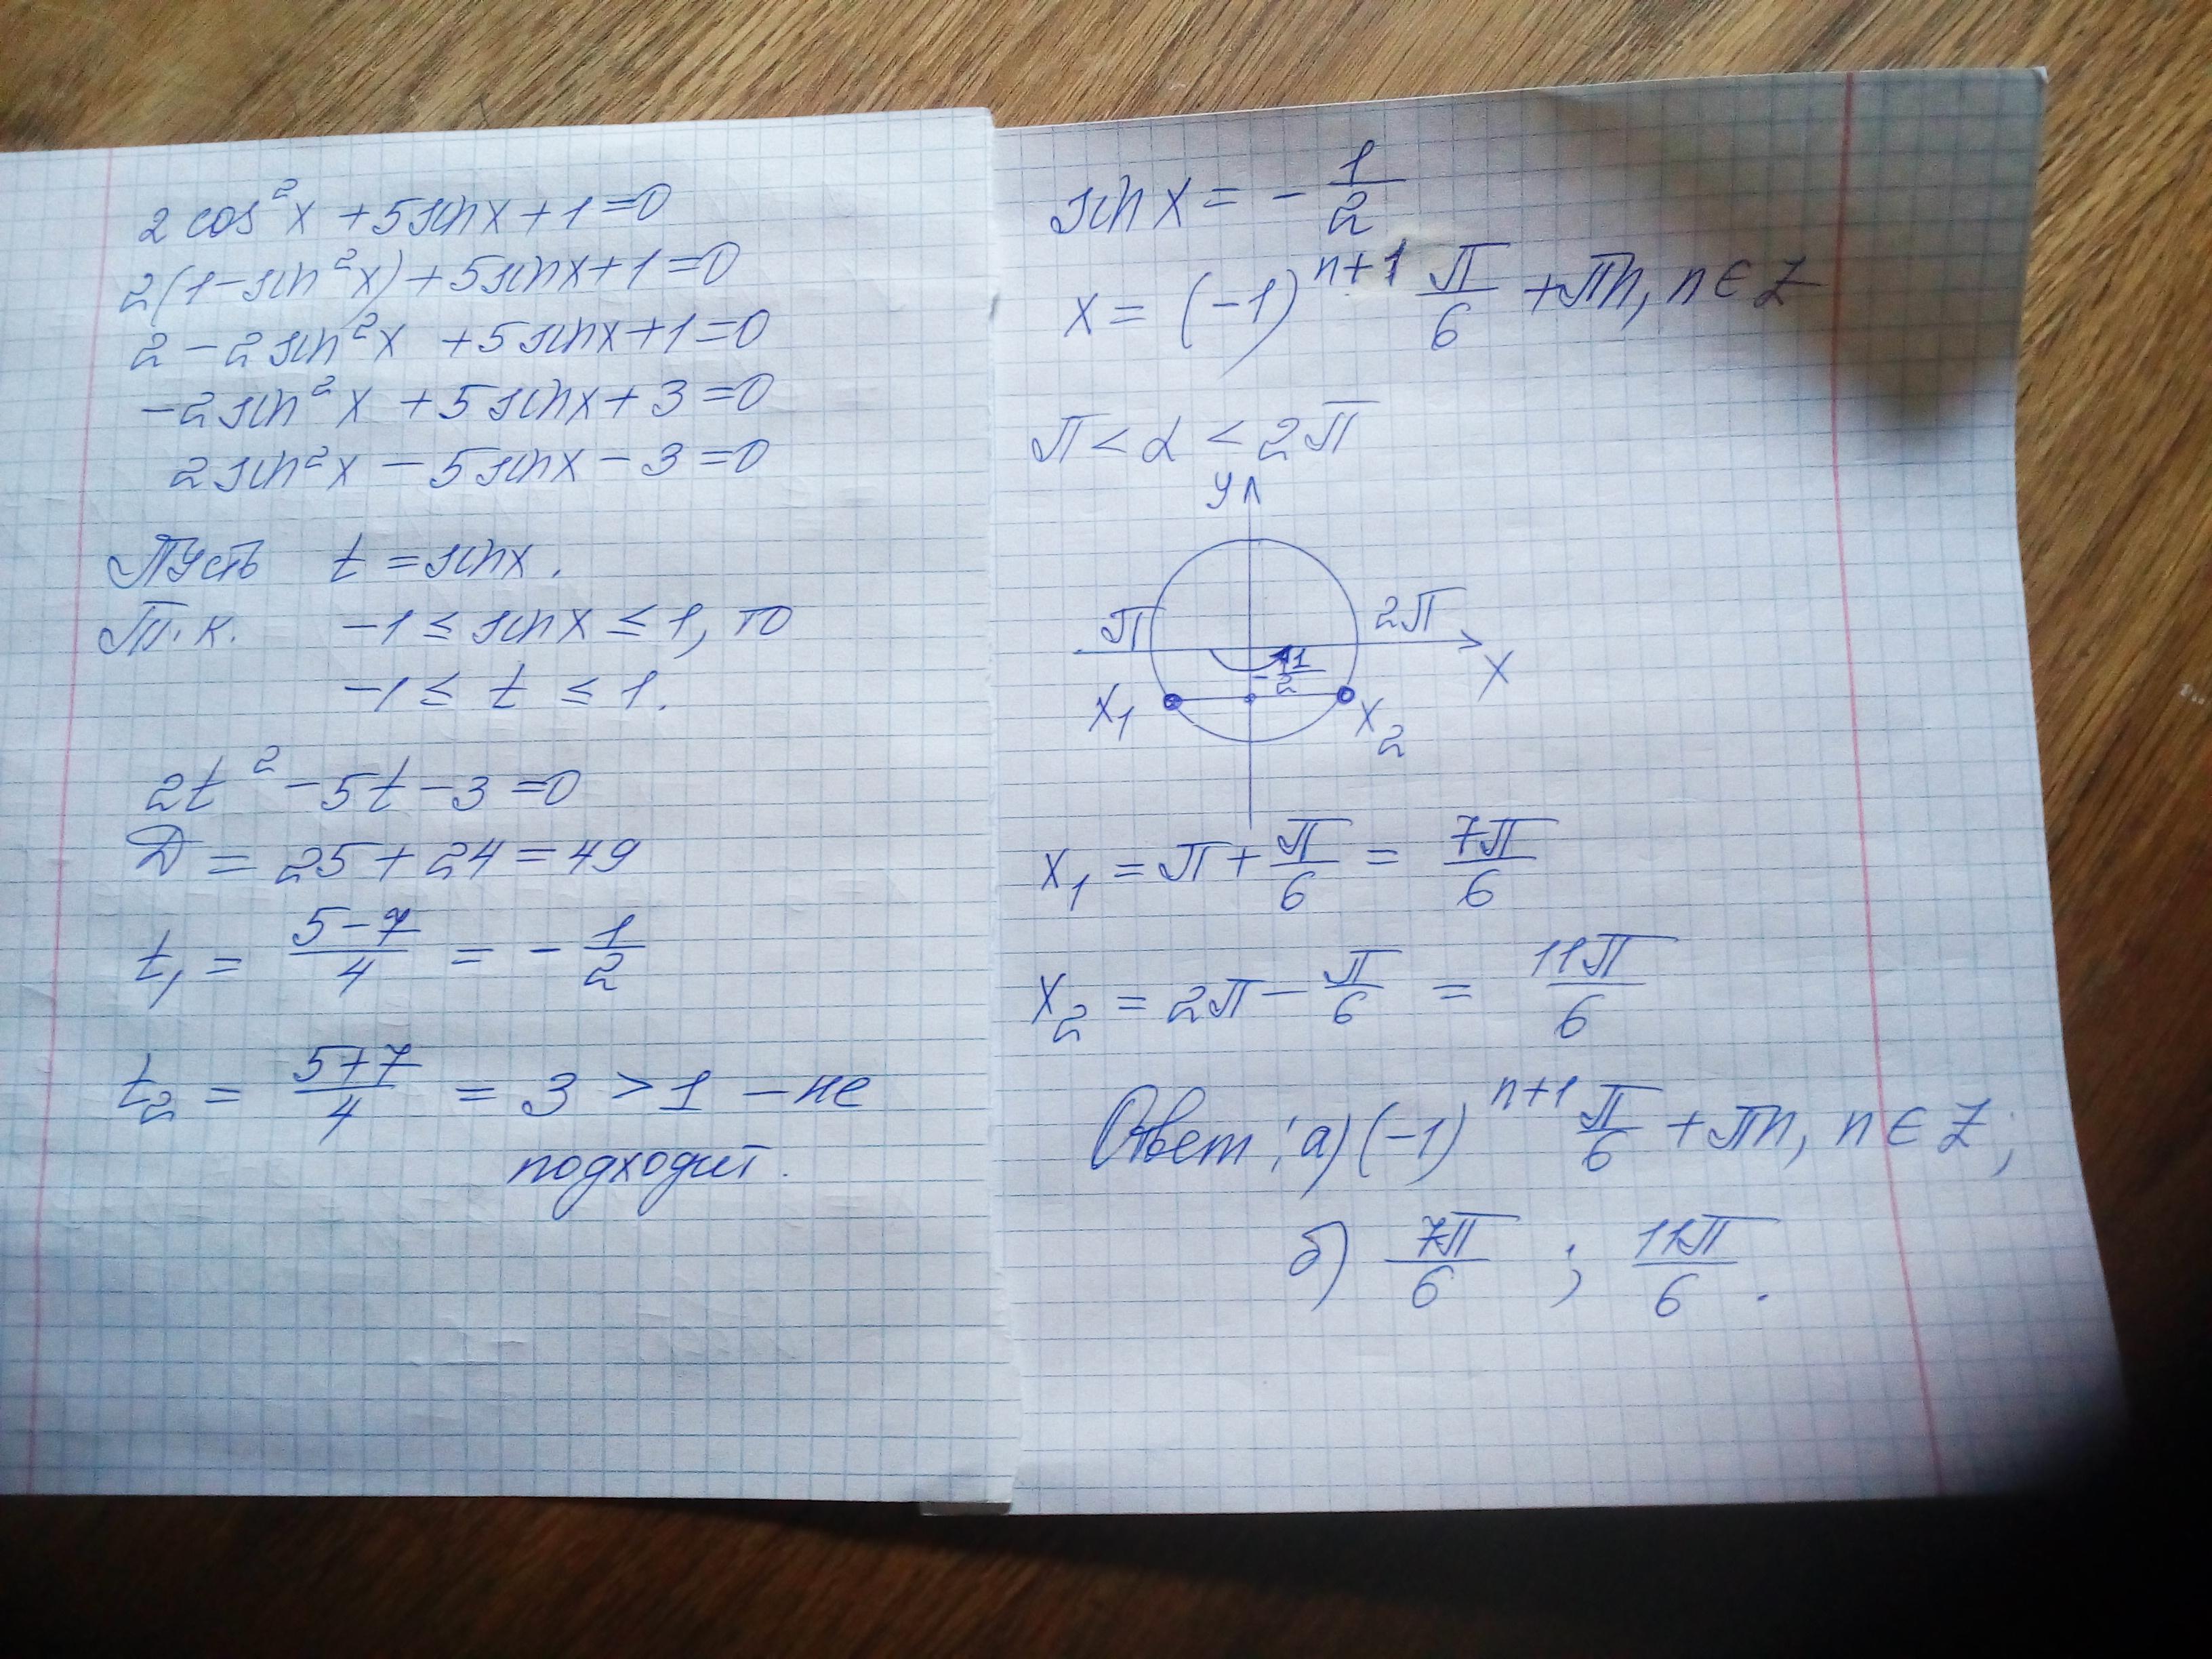 2 cos²x + 5 sin x + 1 = 0
2(1 - sin²x) + 5 sin x + 1 = 0
2 - 2 sin²x + 5 sin x + 1 = 0
- 2 sin²x + 5 sin x + 3 = 0
2 sin²x - 5 sin x - 3 = 0
Пусть t = sin x.
Т.к. -1 ≤ sin x ≤ 1, то
-1 ≤ t ≤ 1.
2t² - 5t - 3 = 0
Д = 25 + 24 = 49
t₁ = (5 - 7)/4 = - 1/2
t₂ = (5 + 7)/4 = 3 > 1 - не
подходит.
sin x = - 1/2
x = (-1)ⁿ⁺¹ π/6 + πn, n ∈ Z
π < α < 2π
y
π 2π
-1/2 x
x₁ x₂
x₁ = π + π/6 = 7π/6
x₂ = 2π - π/6 = 11π/6
Ответ: а) (-1)ⁿ⁺¹ π/6 + πn, n ∈ Z;
б) 7π/6 ; 11π/6.